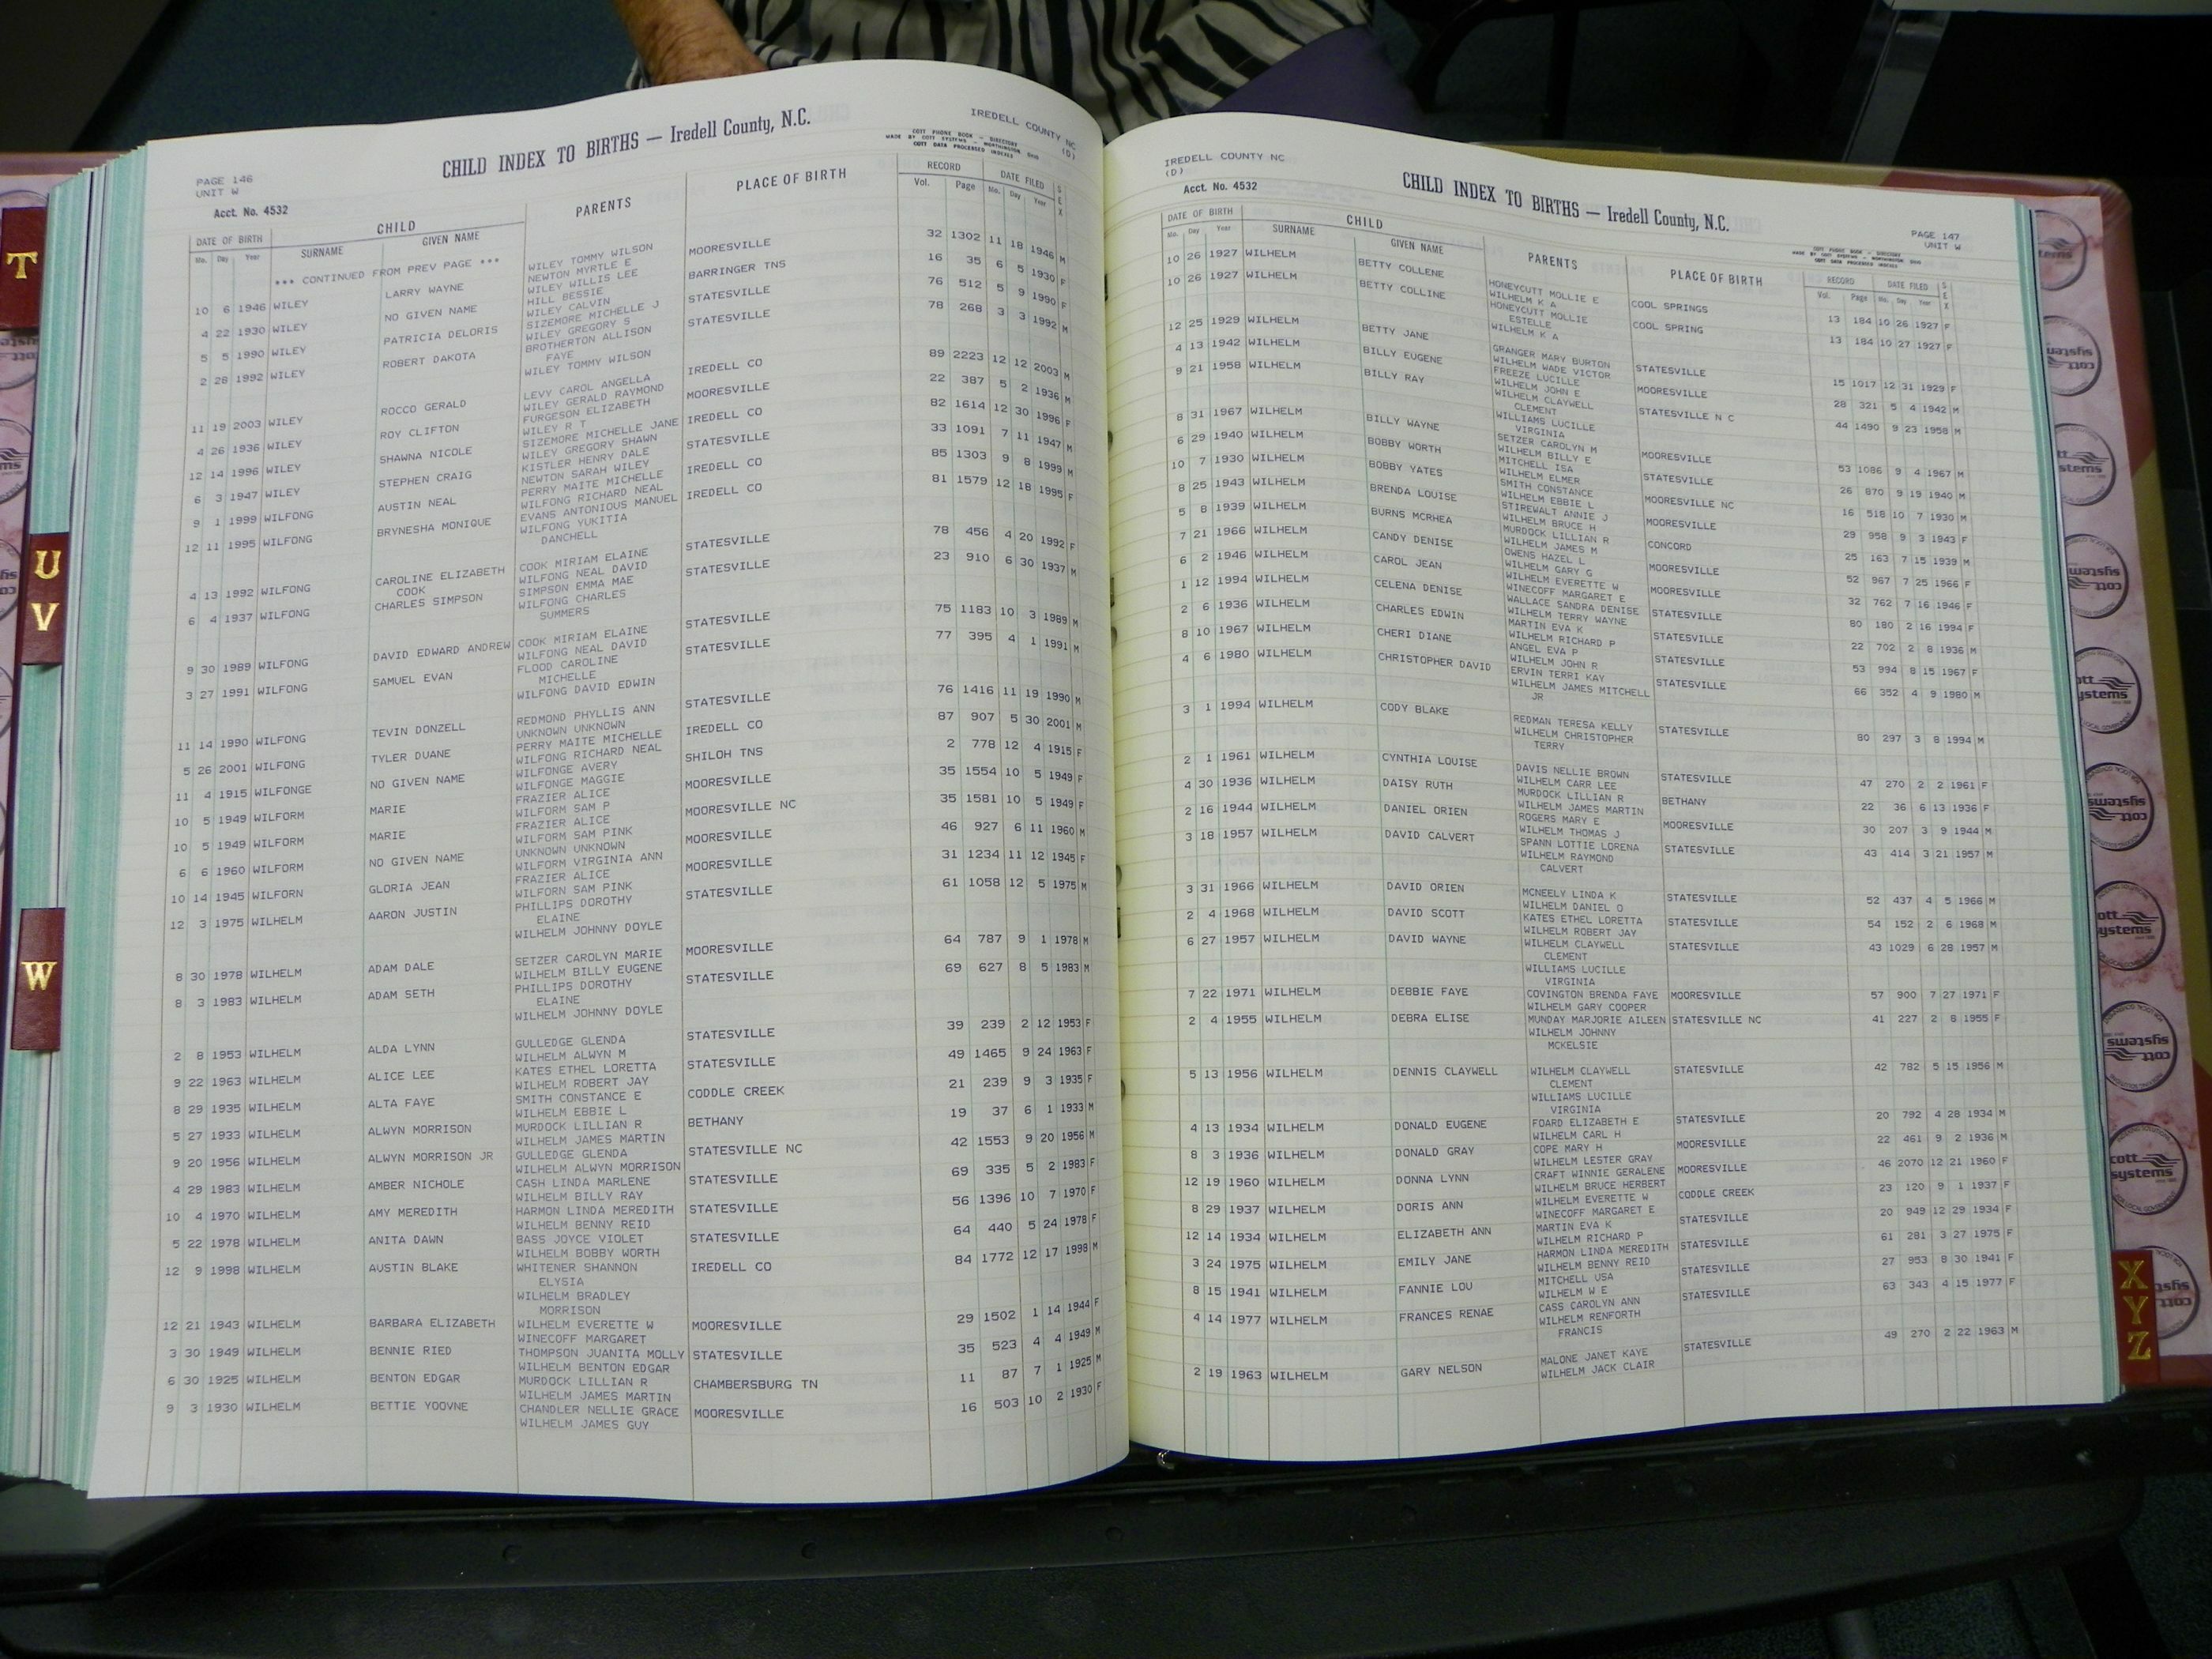 T
U
V
W
PAGE 146
UNIT W
CHILD INDEX TO BIRTHS — Iredell County, N.C.
IREDELL COUNTY NC
(D)
COTT PHONE BOOK - DIRECTORY
MADE BY COTT SYSTEMS - WORTHINGTON OHIO
COTT DATA PROCESSED INDEXES
Acct. No. 4532
DATE OF BIRTH CHILD PARENTS PLACE OF BIRTH RECORD DATE FILED SEX
Mo. Day Year SURNAME GIVEN NAME Vol. Page Mo. Day Year
*** CONTINUED FROM PREV PAGE ***
WILEY TOMMY WILSON
10 6 1946 WILEY LARRY WAYNE NEWTON MYRTLE E MOORESVILLE 32 1302 11 18 1946 M
WILEY WILLIS LEE
4 22 1930 WILEY NO GIVEN NAME HILL BESSIE BARRINGER TNS 16 35 6 5 1930 F
WILEY CALVIN
5 5 1990 WILEY PATRICIA DELORIS SIZEMORE MICHELLE J STATESVILLE 76 512 5 9 1990 F
WILEY GREGORY S
2 28 1992 WILEY ROBERT DAKOTA BROTHERTON ALLISON STATESVILLE 78 268 3 3 1992 M
FAYE
WILEY TOMMY WILSON
11 19 2003 WILEY ROCCO GERALD LEVY CAROL ANGELLA IREDELL CO 89 2223 12 12 2003 M
WILEY GERALD RAYMOND
4 26 1936 WILEY ROY CLIFTON FURGESON ELIZABETH MOORESVILLE 22 387 5 2 1936 M
WILEY R T
12 14 1996 WILEY SHAWNA NICOLE SIZEMORE MICHELLE JANE IREDELL CO 82 1614 12 30 1996 F
WILEY GREGORY SHAWN
6 3 1947 WILEY STEPHEN CRAIG KISTLER HENRY DALE STATESVILLE 33 1091 7 11 1947 M
NEWTON SARAH WILEY
9 1 1999 WILFONG AUSTIN NEAL PERRY MAITE MICHELLE IREDELL CO 85 1303 9 8 1999 M
WILFONG RICHARD NEAL
12 11 1995 WILFONG BRYNESHA MONIQUE EVANS ANTONIOUS MANUEL IREDELL CO 81 1579 12 18 1995 F
WILFONG YUKITIA
DANCHELL
4 13 1992 WILFONG CAROLINE ELIZABETH COOK MIRIAM ELAINE STATESVILLE 78 456 4 20 1992 F
COOK WILFONG NEAL DAVID
6 4 1937 WILFONG CHARLES SIMPSON SIMPSON EMMA MAE STATESVILLE 23 910 6 30 1937 M
WILFONG CHARLES
SUMMERS
9 30 1989 WILFONG DAVID EDWARD ANDREW COOK MIRIAM ELAINE STATESVILLE 75 1183 10 3 1989 M
WILFONG NEAL DAVID
3 27 1991 WILFONG SAMUEL EVAN FLOOD CAROLINE STATESVILLE 77 395 4 1 1991 M
MICHELLE
WILFONG DAVID EDWIN
11 14 1990 WILFONG TEVIN DONZELL REDMOND PHYLLIS ANN STATESVILLE 76 1416 11 19 1990 M
UNKNOWN UNKNOWN
5 26 2001 WILFONG TYLER DUANE PERRY MAITE MICHELLE IREDELL CO 87 907 5 30 2001 M
WILFONG RICHARD NEAL
11 4 1915 WILFONGE NO GIVEN NAME WILFONGE AVERY SHILOH TNS 2 778 12 4 1915 F
WILFONGE MAGGIE
10 5 1949 WILFORM MARIE FRAZIER ALICE MOORESVILLE 35 1554 10 5 1949 F
WILFORM SAM P
10 5 1949 WILFORM MARIE FRAZIER ALICE MOORESVILLE NC 35 1581 10 5 1949 F
WILFORM SAM PINK
6 6 1960 WILFORM NO GIVEN NAME UNKNOWN UNKNOWN MOORESVILLE 46 927 6 11 1960 M
WILFORM VIRGINIA ANN
10 14 1945 WILFORN GLORIA JEAN FRAZIER ALICE MOORESVILLE 31 1234 11 12 1945 F
WILFORN SAM PINK
12 3 1975 WILHELM AARON JUSTIN PHILLIPS DOROTHY STATESVILLE 61 1058 12 5 1975 M
ELAINE
WILHELM JOHNNY DOYLE
8 30 1978 WILHELM ADAM DALE SETZER CAROLYN MARIE MOORESVILLE 64 787 9 1 1978 M
WILHELM BILLY EUGENE
8 3 1983 WILHELM ADAM SETH PHILLIPS DOROTHY STATESVILLE 69 627 8 5 1983 M
ELAINE
WILHELM JOHNNY DOYLE
2 8 1953 WILHELM ALDA LYNN GULLEDGE GLENDA STATESVILLE 39 239 2 12 1953 F
WILHELM ALWYN M
9 22 1963 WILHELM ALICE LEE KATES ETHEL LORETTA STATESVILLE 49 1465 9 24 1963 F
WILHELM ROBERT JAY
8 29 1935 WILHELM ALTA FAYE SMITH CONSTANCE E CODDLE CREEK 21 239 9 3 1935 F
WILHELM EBBIE L
5 27 1933 WILHELM ALWYN MORRISON MURDOCK LILLIAN R BETHANY 19 37 6 1 1933 M
WILHELM JAMES MARTIN
9 20 1956 WILHELM ALWYN MORRISON JR GULLEDGE GLENDA STATESVILLE NC 42 1553 9 20 1956 M
WILHELM ALWYN MORRISON
4 29 1983 WILHELM AMBER NICHOLE CASH LINDA MARLENE STATESVILLE 69 335 5 2 1983 F
WILHELM BILLY RAY
10 4 1970 WILHELM AMY MEREDITH HARMON LINDA MEREDITH STATESVILLE 56 1396 10 7 1970 F
WILHELM BENNY REID
5 22 1978 WILHELM ANITA DAWN BASS JOYCE VIOLET STATESVILLE 64 440 5 24 1978 F
WILHELM BOBBY WORTH
12 9 1998 WILHELM AUSTIN BLAKE WHITENER SHANNON IREDELL CO 84 1772 12 17 1998 M
ELYSIA
WILHELM BRADLEY
MORRISON
12 21 1943 WILHELM BARBARA ELIZABETH WILHELM EVERETTE W MOORESVILLE 29 1502 1 14 1944 F
WINECOFF MARGARET
3 30 1949 WILHELM BENNIE RIED THOMPSON JUANITA MOLLY STATESVILLE 35 523 4 4 1949 M
WILHELM BENTON EDGAR
6 30 1925 WILHELM BENTON EDGAR MURDOCK LILLIAN R CHAMBERSBURG TN 11 87 7 1 1925 M
WILHELM JAMES MARTIN
9 3 1930 WILHELM BETTIE YOOVNE CHANDLER NELLIE GRACE MOORESVILLE 16 503 10 2 1930 F
WILHELM JAMES GUY
IREDELL COUNTY NC
(D)
Acct. No. 4532
CHILD INDEX TO BIRTHS — Iredell County, N.C.
PAGE 147
UNIT W
DATE OF BIRTH CHILD PARENTS PLACE OF BIRTH RECORD DATE FILED SEX
Mo. Day Year SURNAME GIVEN NAME Vol. Page Mo. Day Year
10 26 1927 WILHELM BETTY COLLENE HONEYCUTT MOLLIE E COOL SPRINGS 13 184 10 26 1927 F
WILHELM K A
10 26 1927 WILHELM BETTY COLLINE HONEYCUTT MOLLIE COOL SPRING 13 184 10 27 1927 F
ESTELLE
WILHELM K A
12 25 1929 WILHELM BETTY JANE GRANGER MARY BURTON STATESVILLE 15 1017 12 31 1929 F
WILHELM WADE VICTOR
4 13 1942 WILHELM BILLY EUGENE FREEZE LUCILLE MOORESVILLE 28 321 5 4 1942 M
WILHELM JOHN E
9 21 1958 WILHELM BILLY RAY WILHELM CLAYWELL STATESVILLE N C 44 1490 9 23 1958 M
CLEMENT
WILLIAMS LUCILLE
VIRGINIA
8 31 1967 WILHELM BILLY WAYNE SETZER CAROLYN M MOORESVILLE 53 1086 9 4 1967 M
WILHELM BILLY E
6 29 1940 WILHELM BOBBY WORTH MITCHELL ISA STATESVILLE 26 870 9 19 1940 M
WILHELM ELMER
10 7 1930 WILHELM BOBBY YATES SMITH CONSTANCE MOORESVILLE NC 16 518 10 7 1930 M
WILHELM EBBIE L
8 25 1943 WILHELM BRENDA LOUISE STIREWALT ANNIE J MOORESVILLE 29 958 9 3 1943 F
WILHELM BRUCE H
5 8 1939 WILHELM BURNS MCRHEA MURDOCK LILLIAN R CONCORD 25 163 7 15 1939 M
WILHELM JAMES M
7 21 1966 WILHELM CANDY DENISE OWENS HAZEL L MOORESVILLE 52 967 7 25 1966 F
WILHELM GARY G
6 2 1946 WILHELM CAROL JEAN WILHELM EVERETTE W MOORESVILLE 32 762 7 16 1946 F
WINECOFF MARGARET E
1 12 1994 WILHELM CELENA DENISE WALLACE SANDRA DENISE STATESVILLE 80 180 2 16 1994 F
WILHELM TERRY WAYNE
2 6 1936 WILHELM CHARLES EDWIN MARTIN EVA K STATESVILLE 22 702 2 8 1936 M
WILHELM RICHARD P
8 10 1967 WILHELM CHERI DIANE ANGEL EVA P STATESVILLE 53 994 8 15 1967 F
WILHELM JOHN R
4 6 1980 WILHELM CHRISTOPHER DAVID ERVIN TERRI KAY STATESVILLE 66 352 4 9 1980 M
WILHELM JAMES MITCHELL
JR
3 1 1994 WILHELM CODY BLAKE REDMAN TERESA KELLY STATESVILLE 80 297 3 8 1994 M
WILHELM CHRISTOPHER
TERRY
2 1 1961 WILHELM CYNTHIA LOUISE DAVIS NELLIE BROWN STATESVILLE 47 270 2 2 1961 F
WILHELM CARR LEE
4 30 1936 WILHELM DAISY RUTH MURDOCK LILLIAN R BETHANY 22 36 6 13 1936 F
WILHELM JAMES MARTIN
2 16 1944 WILHELM DANIEL ORIEN ROGERS MARY E MOORESVILLE 30 207 3 9 1944 M
WILHELM THOMAS J
3 18 1957 WILHELM DAVID CALVERT SPANN LOTTIE LORENA STATESVILLE 43 414 3 21 1957 M
WILHELM RAYMOND
CALVERT
3 31 1966 WILHELM DAVID ORIEN MCNEELY LINDA K STATESVILLE 52 437 4 5 1966 M
WILHELM DANIEL O
2 4 1968 WILHELM DAVID SCOTT KATES ETHEL LORETTA STATESVILLE 54 152 2 6 1968 M
WILHELM ROBERT JAY
6 27 1957 WILHELM DAVID WAYNE WILHELM CLAYWELL STATESVILLE 43 1029 6 28 1957 M
CLEMENT
WILLIAMS LUCILLE
VIRGINIA
7 22 1971 WILHELM DEBBIE FAYE COVINGTON BRENDA FAYE MOORESVILLE 57 900 7 27 1971 F
WILHELM GARY COOPER
2 4 1955 WILHELM DEBRA ELISE MUNDAY MARJORIE AILEEN STATESVILLE NC 41 227 2 8 1955 F
WILHELM JOHNNY
MCKELSIE
5 13 1956 WILHELM DENNIS CLAYWELL WILHELM CLAYWELL STATESVILLE 42 782 5 15 1956 M
CLEMENT
WILLIAMS LUCILLE
VIRGINIA
4 13 1934 WILHELM DONALD EUGENE FOARD ELIZABETH E STATESVILLE 20 792 4 28 1934 M
WILHELM CARL H
8 3 1936 WILHELM DONALD GRAY COPE MARY H MOORESVILLE 22 461 9 2 1936 M
WILHELM LESTER GRAY
12 19 1960 WILHELM DONNA LYNN CRAFT WINNIE GERALENE MOORESVILLE 46 2070 12 21 1960 F
WILHELM BRUCE HERBERT
8 29 1937 WILHELM DORIS ANN WILHELM EVERETTE W CODDLE CREEK 23 120 9 1 1937 F
WINECOFF MARGARET E
12 14 1934 WILHELM ELIZABETH ANN MARTIN EVA K STATESVILLE 20 949 12 29 1934 F
WILHELM RICHARD P
3 24 1975 WILHELM EMILY JANE HARMON LINDA MEREDITH STATESVILLE 61 281 3 27 1975 F
WILHELM BENNY REID
8 15 1941 WILHELM FANNIE LOU MITCHELL USA STATESVILLE 27 953 8 30 1941 F
WILHELM W E
4 14 1977 WILHELM FRANCES RENAE CASS CAROLYN ANN STATESVILLE 63 343 4 15 1977 F
WILHELM RENFORTH
FRANCIS
2 19 1963 WILHELM GARY NELSON MALONE JANET KAYE STATESVILLE 49 270 2 22 1963 M
WILHELM JACK CLAIR
X
Y
Z
cott
systems